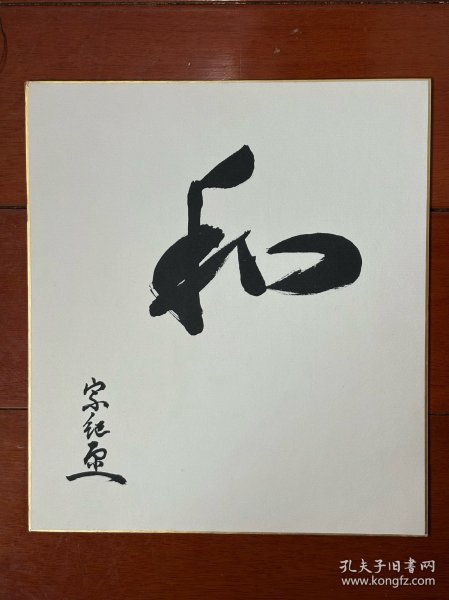 和
宗紀
孔夫子旧书网
www.kongfz.com